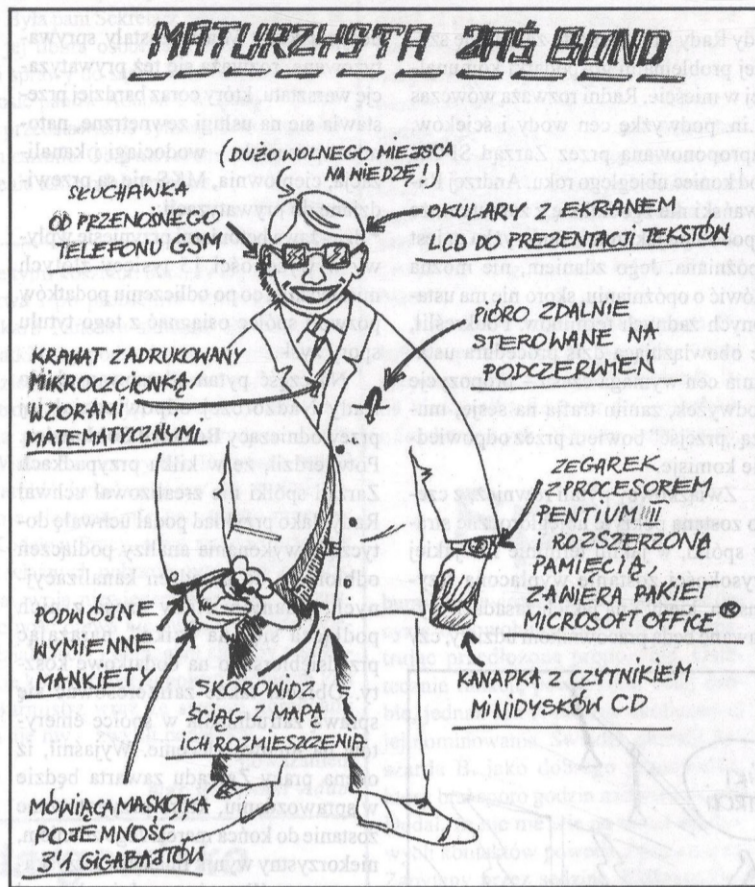 MATURZYSTA ZAS BOND
(DUŻO WOLNEGO MIEJSCA
NA WIEDZĘ!)
SŁUCHAWKA
OD PRZENOŚNEGO
TELEFONU GSM
OKULARY Z EKRANEM
LCD DO PREZENTACJI TEKSTÓW
PIÓRO ZDALNIE
STEROWANE NA
PODCZERWIEŃ
KRAWAT ZADRUKOWANY
MIKROCZCIONKĄ
WZORAMI
MATEMATYCZNYMI
ZEGAREK
Z PROCESOREM
PENTIUM!!!!
I ROZSZERZONĄ
PAMIĘCIĄ.
ZAWIERA PAKIET
MICROSOFT OFFICE ®
PODWÓJNE
WYMIENNE
MANKIETY
SKOROWIDZ
ŚCIĄG Z MAPĄ
ICH ROZMIESZCZENIA
KANAPKA Z CZYTNIKIEM
MINIDYSKÓW CD
MÓWIĄCA MASKOTKA
POJEMNOŚĆ
3'1 GIGABAJTÓW